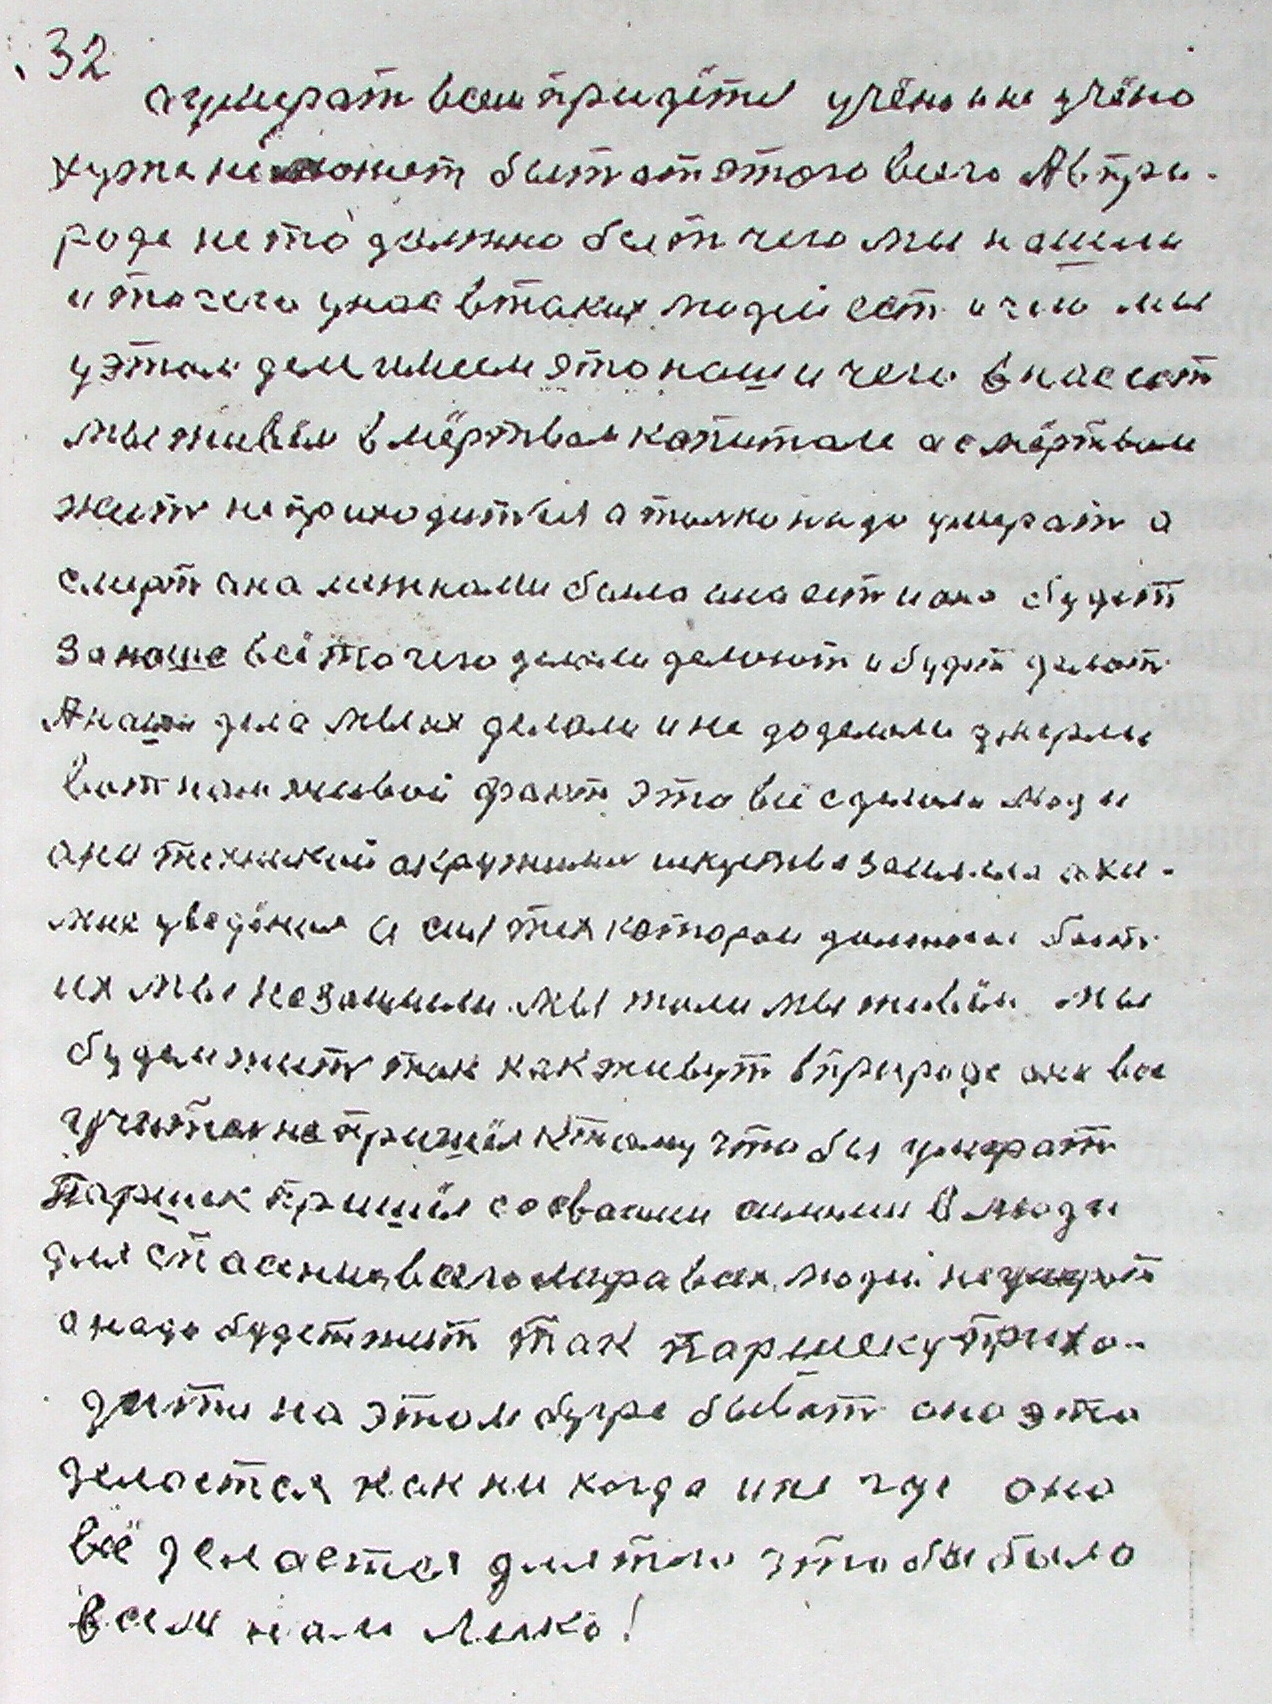 32
а умират всем придётця учёно и не учёно
хужа не может быт от этого всего А в при-
роде не то должно быт чего мы нашли
и то чего у нас в таких людей ест и чего мы
у этом деле имеем это наши чего в нас ест
мы живём в мёртвом капитале а с мёртвым
жит не приходиться а только надо умират а
смерт она межнами была она ест и она будет
за наше всё то чего делали делают и будут делат
А наши дела мы их делали и не доделали умерли
вот нам живой факт это всё сделали люди
они техникой окружили искуства зашила а хи-
мия уведения а сил тех которои должны быт
их мы не зашили мы жили мы живём мы
будем жит так как живут в природе она вое
учител не пришёл к тому что бы умират
Паршек пришёл со своими силами в люди
для спасения всего мира всех людей не умират
а надо будет жит так паршеку прихо-
дитця на этом бугре быват оно это
делается как ни когда и не где оно
всё делается для того что бы было
всем нам легко!